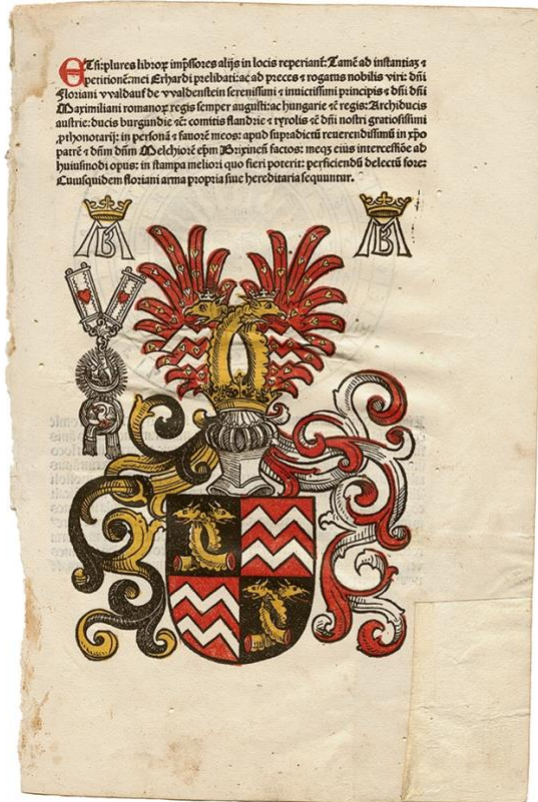 ETsi: plures libroꝝ imp̄ssores alijs in locis reperiant᷑: Tamē ad instantiaꝫ ⁊
petitionē: mei Erhardi prelibati: ac ad preces ⁊ rogatus nobilis viri: dn̄i
Floriani vvaldauf de vvaldenstein serenissimi ⁊ inuictissimi principis ⁊ dn̄i dn̄i
Maximiliani romanoꝝ regis semper augusti: ac hungarie ⁊c̄ regis: Archiducis
austrie: ducis burgundie ⁊c̄: comitis flandrie ⁊ tyrolis ⁊c̄ dn̄i nostri gratiosissimi
ꝓthonotarij: in personā ⁊ fauorē meos: apud supradictū reuerendissimū in xp̄o
patrē ⁊ dn̄m dn̄m Melchiorē ep̄m Brixineñ factos: meqꝫ eius intercessiōe ad
huiusmodi opus: in stampa meliori quo fieri poterit: perficiendū delectū fore:
Cuiusquidem floriani arma propria siue hereditaria sequuntur.